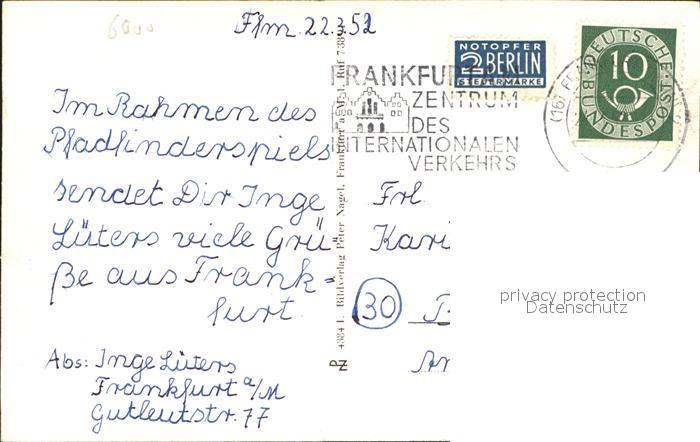 6000
Ffm. 22.3.52
NOTOPFER
2 BERLIN
STEUERMARKE
DEUTSCHE
10
BUNDESPOST
(16) FR
FRANKFURT
ZENTRUM
DES
INTERNATIONALEN
VERKEHRS
Im Rahmen des
Pfadfinderspiels
sendet Dir Inge
Lüters viele Grü-
ße aus Frank=
furt.
Abs: Inge Lüters
Frankfurt a/M
Gutleutstr. 77
4384 L. Bildverlag Peter Nagel, Frankfurt a. M. 1, Ruf
Frl.
Kari
30
privacy protection
Datenschutz